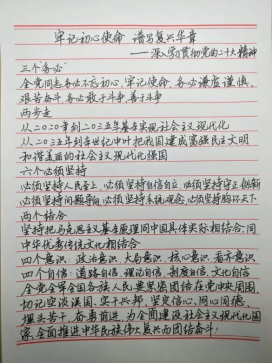 牢记初心使命 谱写复兴华章
——深入学习贯彻党的二十大精神
三个务必
全党同志务必不忘初心、牢记使命,务必谦虚谨慎、
艰苦奋斗,务必敢于斗争、善于斗争
两步走
从二〇二〇年到二〇三五年基本实现社会主义现代化
从二〇三五年到本世纪中叶把我国建成富强民主文明
和谐美丽的社会主义现代化强国
六个必须坚持
必须坚持人民至上,必须坚持自信自立,必须坚持守正创新
必须坚持问题导向,必须坚持系统观念,必须坚持胸怀天下
两个结合
坚持把马克思主义基本原理同中国具体实际相结合,同
中华优秀传统文化相结合
四个意识:政治意识、大局意识、核心意识、看齐意识
四个自信:道路自信、理论自信、制度自信、文化自信
全党全军全国各族人民要紧密团结在党中央周围,
切记空谈误国、实干兴邦,坚定信心、同心同德,
埋头苦干、奋勇前进,为全面建设社会主义现代化国
家、全面推进中华民族伟大复兴而团结奋斗!